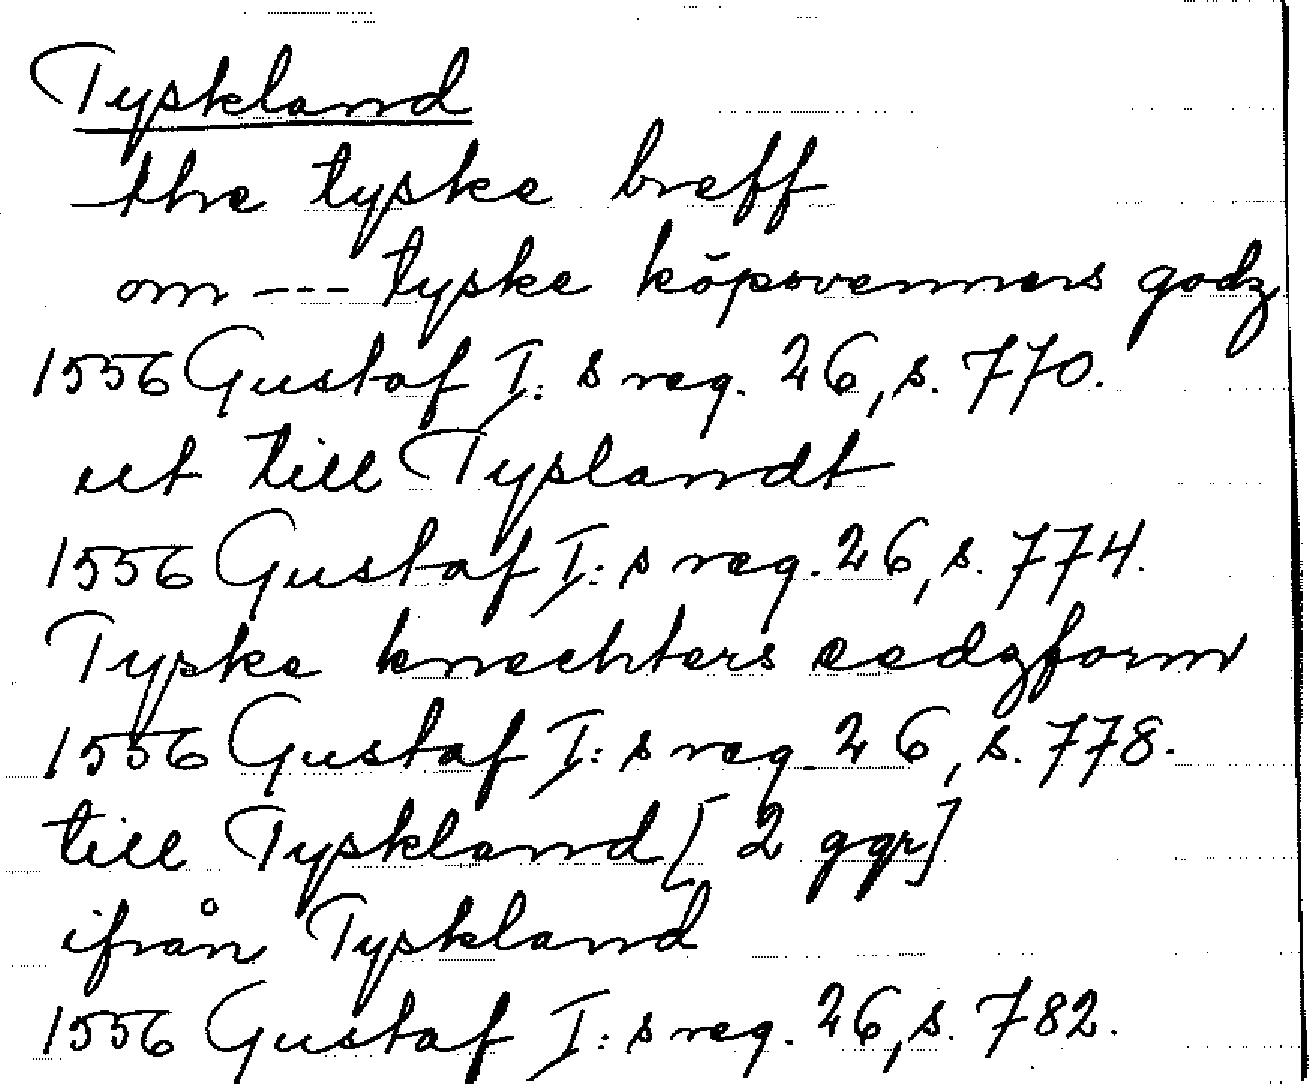 Tyskland
the tyske breff
om --- tyske köpsvenners godz
1556 Gustaf I:s reg. 26, s. 770.
ut till Tyslandt
1556 Gustaf I:s reg. 26, s. 774.
Tyske knechters eedzform
1556 Gustaf I:s reg. 26, s. 778.
till Tyskland [2 ggr]
ifrån Tyskland
1556 Gustaf I:s reg. 26, s. 782.